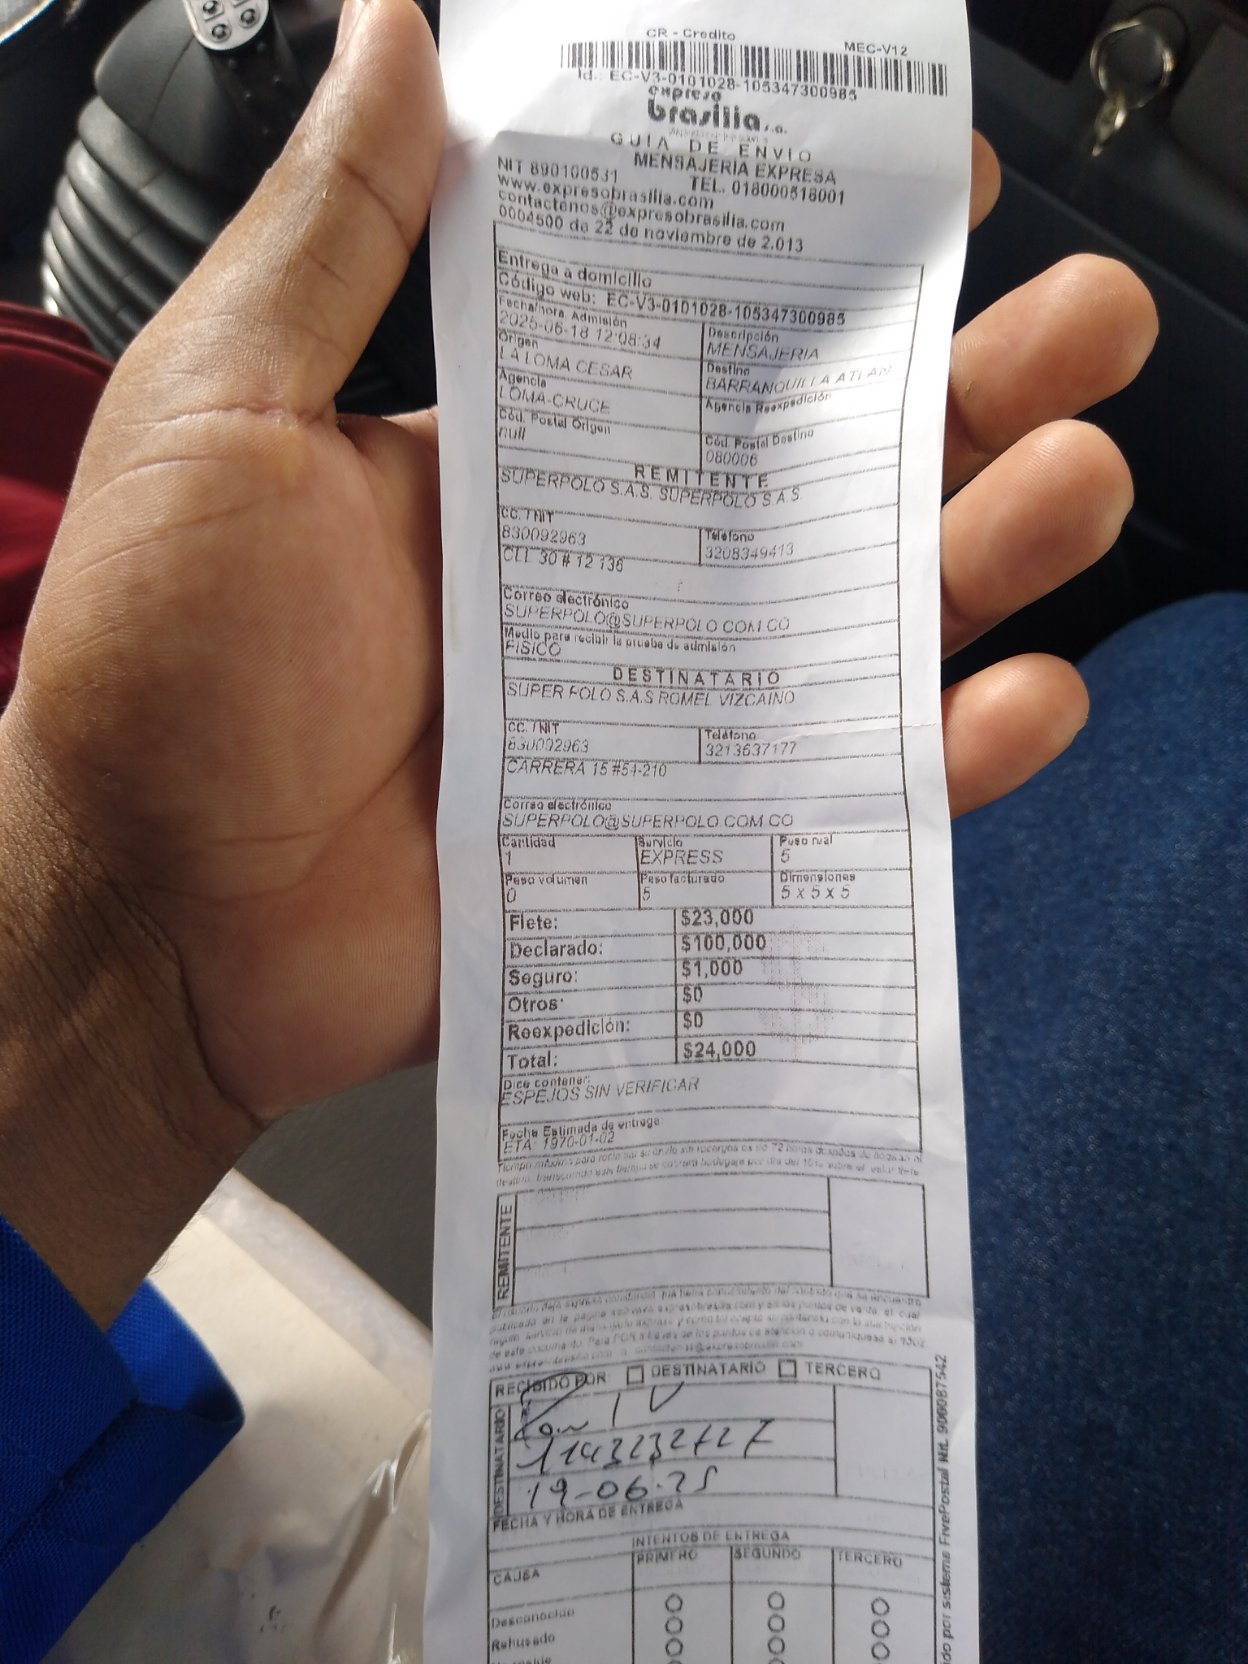 CR - Credito MEC-V12
Id.: EC-V3-0101028-105347300985
expreso
brasilia s.a.
GUIA DE ENVIO
MENSAJERIA EXPRESA
NIT 890100531 TEL. 018000518001
www.expresobrasilia.com
contactenos@expresobrasilia.com
0004500 de 22 de noviembre de 2.013
Entrega a domicilio
Código web: EC-V3-0101028-105347300985
Fecha/hora Admisión Descripción
2025-06-18 12:08:34 MENSAJERIA
Origen Destino
LA LOMA CESAR BARRANQUILLA ATLAN
Agencia Agencia Reexpedición
LOMA-CRUCE
Cód. Postal Origen Cód. Postal Destino
null 080006
REMITENTE
SUPERPOLO S.A.S. SUPERPOLO S.A.S.
CC. / NIT Teléfono
830092963 3208349413
CLL 30 # 12 136
Correo electrónico
SUPERPOLO@SUPERPOLO.COM.CO
Medio para recibir la prueba de admisión
FISICO
DESTINATARIO
SUPER POLO S.A.S ROMEL VIZCAINO
CC. / NIT Teléfono
830092963 3213637177
CARRERA 15 #54-210
Correo electrónico
SUPERPOLO@SUPERPOLO.COM.CO
Cantidad Servicio Peso real
1 EXPRESS 5
Peso volumen Peso facturado Dimensiones
0 5 5 x 5 x 5
Flete: $23,000
Declarado: $100,000
Seguro: $1,000
Otros: $0
Reexpedición: $0
Total: $24,000
Dice contener:
ESPEJOS SIN VERIFICAR
Fecha Estimada de entrega:
ETA: 1970-01-02
REMITENTE
RECIBIDO POR: DESTINATARIO TERCERO
DESTINATARIO
19-06-25
FECHA Y HORA DE ENTREGA
INTENTOS DE ENTREGA
CAUSA PRIMERO SEGUNDO TERCERO
Desconocido
Rehusado
do por sistema FivePostal Nit. 900087542